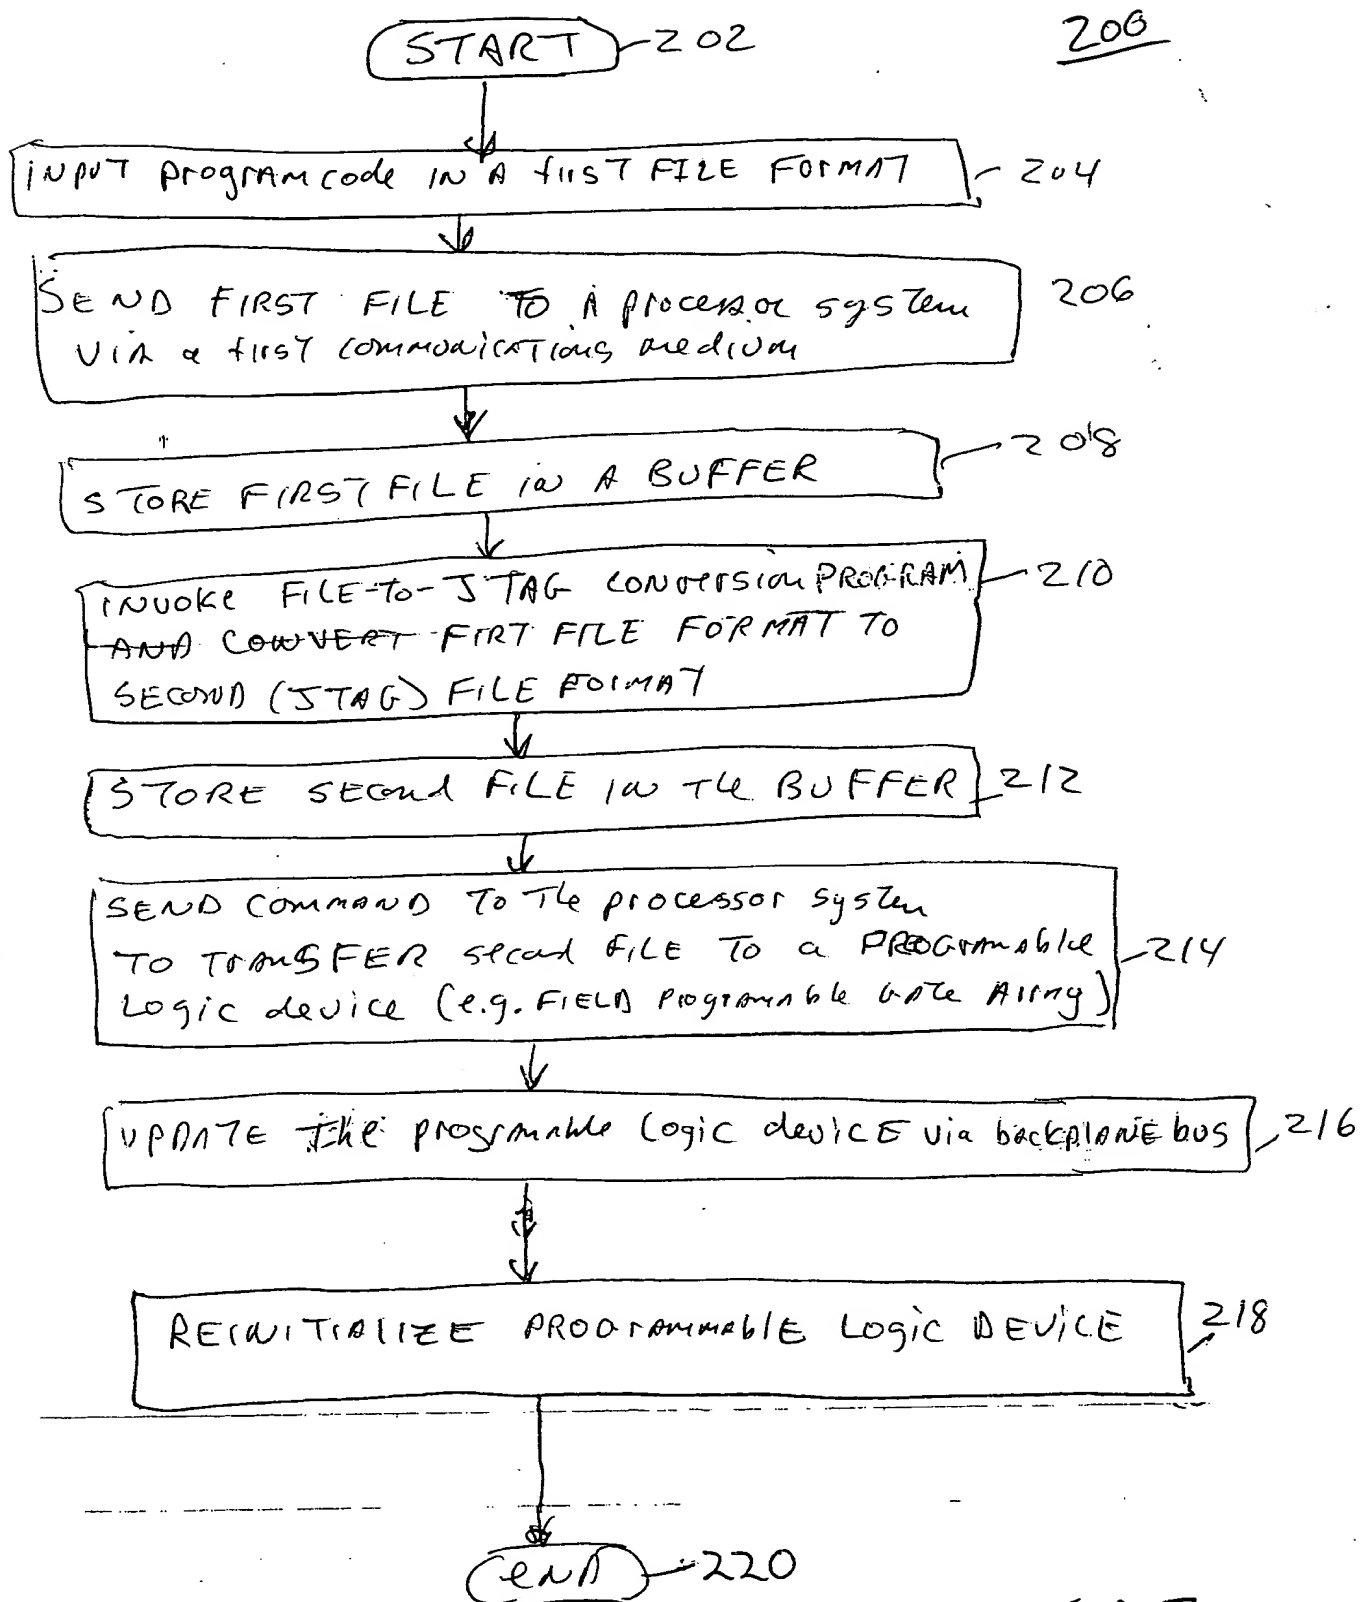 START 202
200
INPUT program code IN A first FILE FORMAT 204
SEND FIRST FILE TO A processor system 206
VIA a first communications medium
STORE FIRST FILE in A BUFFER 208
INVOKE FILE-TO-JTAG CONVERSION PROGRAM 210
AND CONVERT FIRT FILE FORMAT TO
SECOND (JTAG) FILE FORMAT
STORE SECOND FILE IN THE BUFFER 212
SEND COMMAND TO The processor system
TO TRANSFER second FILE TO a PROGramable 214
Logic device (e.g. FIELD Programable Gate Array)
UPDATE the programable Logic deviCE via backPLANE bus 216
REINITIALIZE PROGrammablE Logic DEVICE 218
END 220